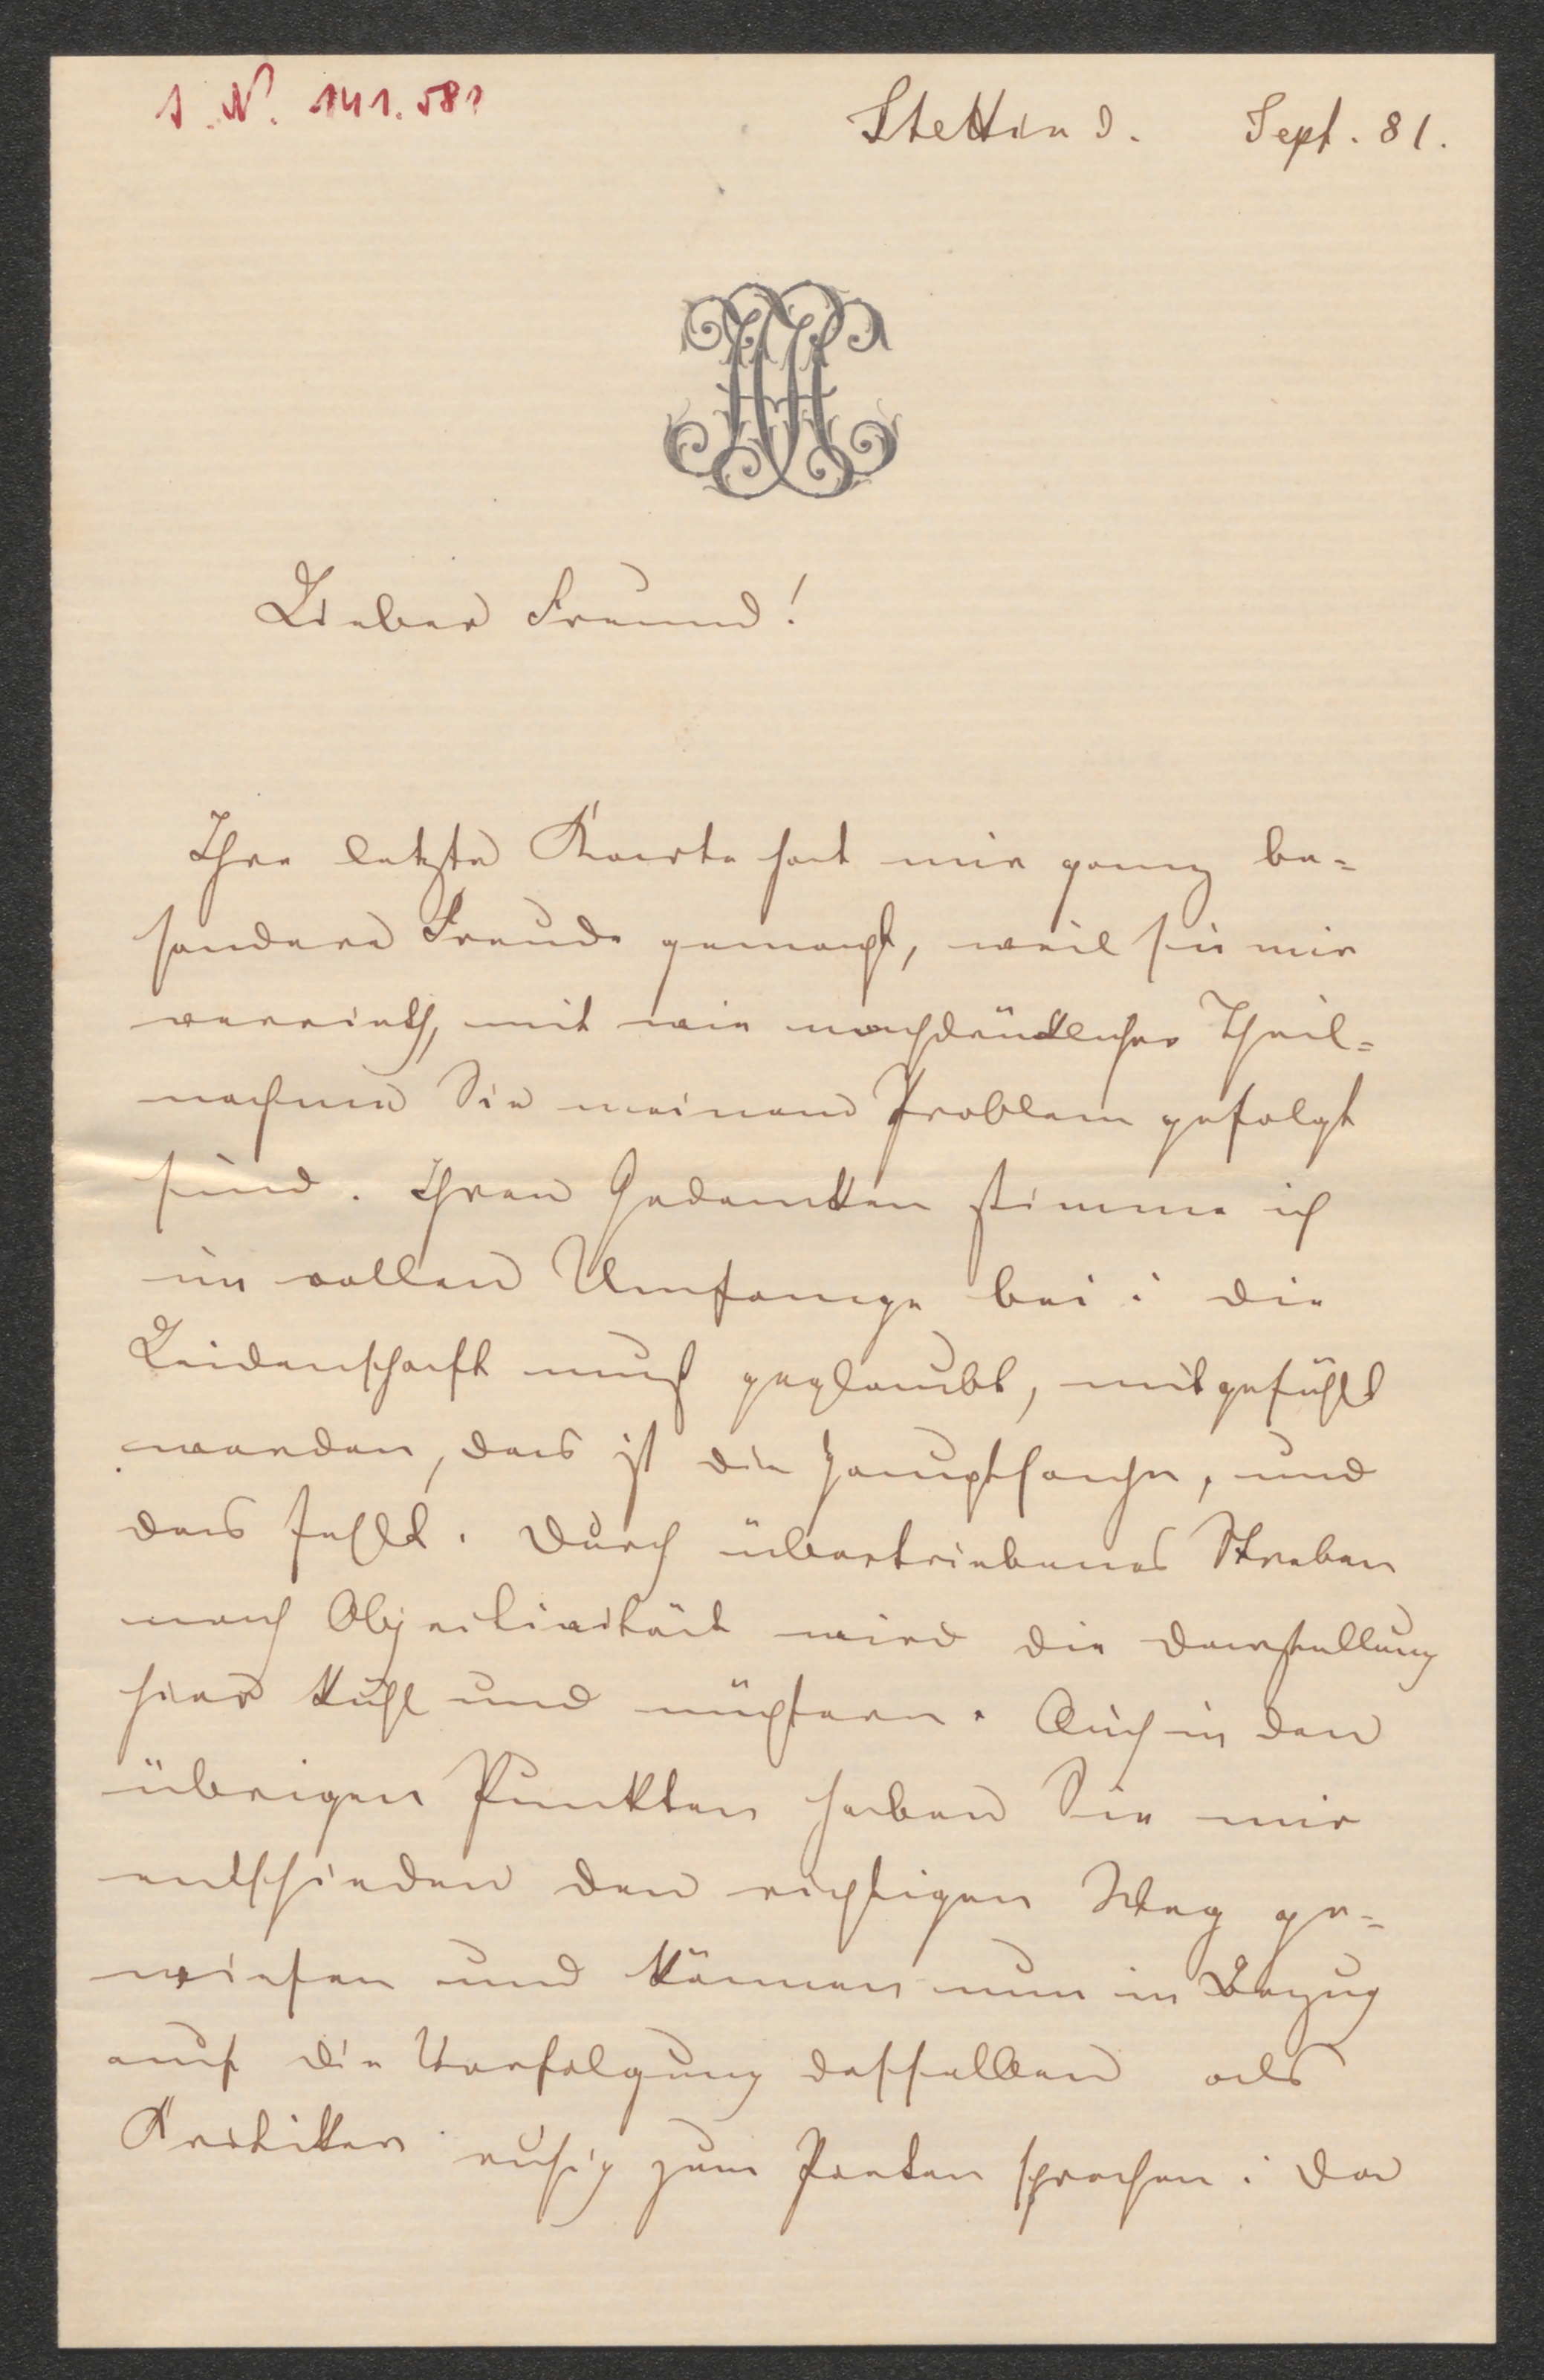 I. N. 141.581
Stettin d. Sept. 81.
Lieber Freund!
Ihre letzte Karte hat mir ganz be=
sondere Freude gemacht, weil sie mir
verrieth, mit wie nachdrücklicher Theil=
nahme Sie meinem Problem gefolgt
sind. Ihren Gedanken stimme ich
im vollen Umfange bei: die
Leidenschaft muß geglaubt, mitgefühlt
werden, das ist die Hauptsache, und
das fehlt. Durch übertriebenes Streben
nach Objectivität wird die Darstellung
hier kühl und nüchtern. Auch in den
übrigen Punkten haben Sie mir
entschieden den richtigen Weg ge=
wiesen und können nun in Bezug
auf die Verfolgung desselben als
Kritiker ruhig zum Poeten sprechen: da